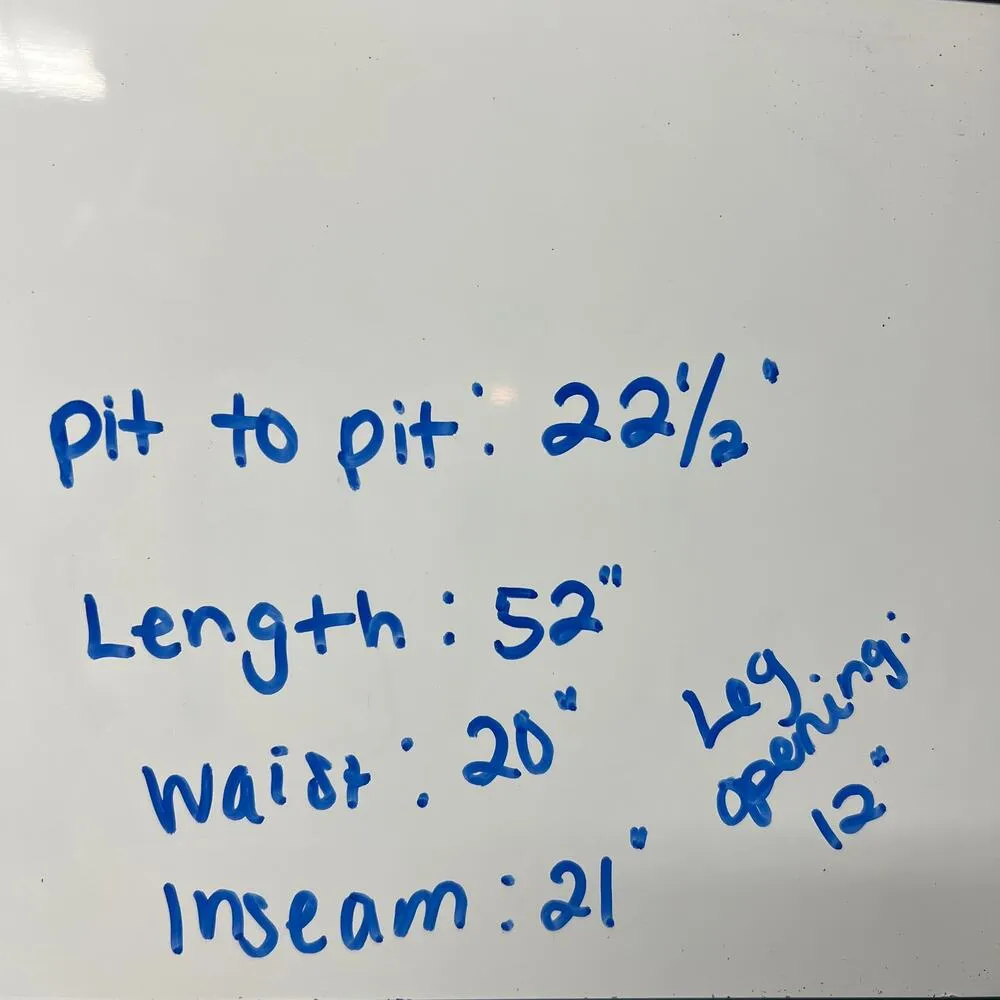 pit to pit: 22 1/2"
Length: 52"
waist: 20"
Inseam: 21"
Leg
opening:
12"